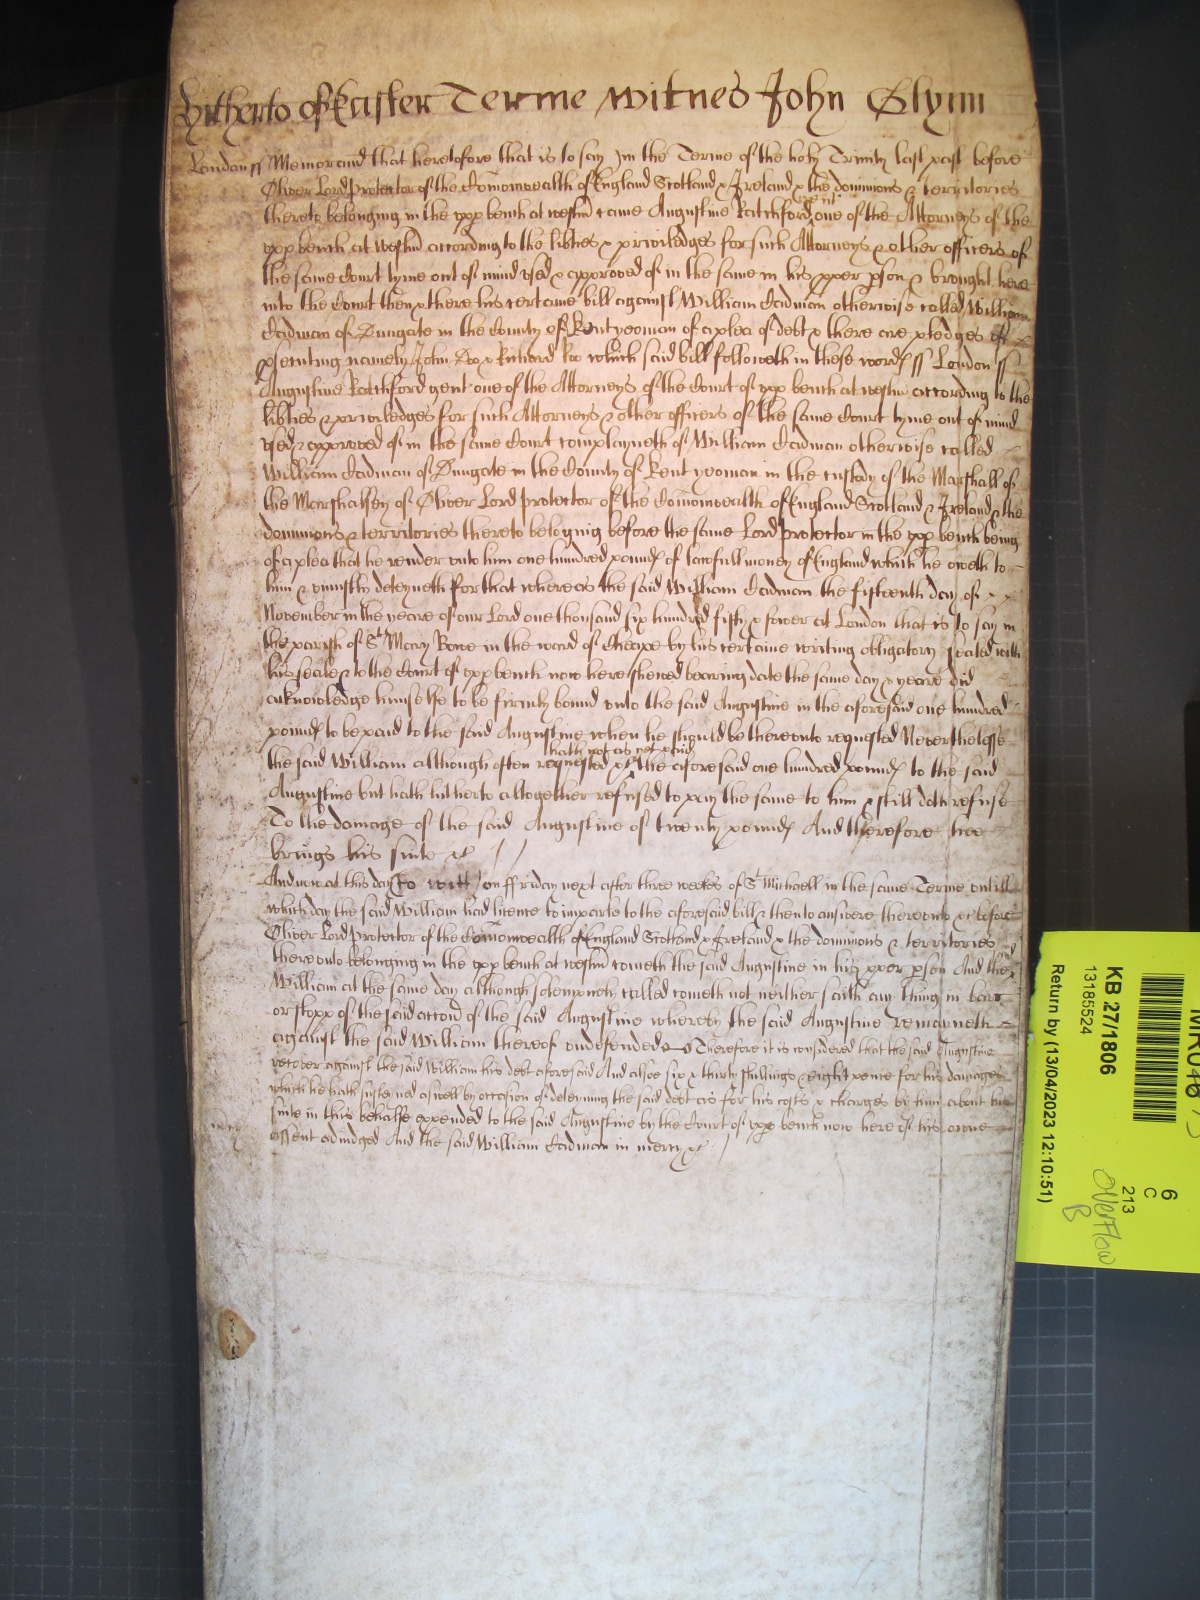 Hitherto of Easter Terme Witnes John Glynn
London ss Memorand that heretofore that is to say in the Terme of the holy Trinity last past before
Oliver Lord Protector of the Comonwealth of England Scotland & Ireland & the dominions & territories
thereto belonging in the upp bench at westm came Augustine Ratchford gent one of the Attorneys of the
upp bench at westm according to the libties & priviledges for such Attorneys & other officers of
the same Court tyme out of mind used & approved of in the same in his pper pson & brought here
into the Court then & there his certaine bill against William Cadman otherwise called William
Cadman of Dungate in the County of Kent yeoman of a plea of debt & there are pledges of
psecuting namely John Doo & Richard Roo which said bill followeth in these words ss London ss
Augustine Ratchford gent one of the Attorneys of the Court of upp bench at westm according to the
libties & priviledges for such Attorneys & other officers of the same Court tyme out of mind
used & approved of in the same Court complayneth of William Cadman otherwise called
William Cadman of Dungate in the County of Kent yeoman in the custody of the Marshall of
the Marshalsey of Oliver Lord Protector of the Comonwealth of England Scotland & Ireland & the
dominions & territories thereto belonging before the same Lord Protector in the upp bench being
of a plea that he render unto him one hundred pounds of lawfull money of England which he oweth to
him & uniustly deteyneth for that whereas the said William Cadman the fifteenth day of
November in the yeare of our Lord one thousand six hundred fifty & fower at London that is to say in
the parish of St Mary Bowe in the ward of Cheape by his certaine writing obligatory sealed with
his seale & to the Court of upp bench now here shewed bearing date the same day & yeare did
acknowledge himselfe to be firmly bound unto the said Augustine in the aforesaid one hundred
pounds to be paid to the said Augustine when he should be thereunto requested Neverthelesse
the said William although often requested &c hath not as yet paid the aforesaid one hundred pounds to the said
Augustine but hath hitherto altogether refused to pay the same to him & still doth refuse
To the damage of the said Augustine of twenty pounds And therefore hee
brings his suite &c
And now at this day (to witt) on ffriday next after three weekes of St Michaell in the same Terme untill
which day the said William had licence to imparle to the aforesaid bill & then to answere thereunto &c before
Oliver Lord Protector of the Comonwealth of England Scotland & Ireland & the dominions & territories
thereunto belonging in the upp bench at westm cometh the said Augustine in his pper pson And the
William at the same day although solempnely called cometh not neither saith any thing in barr
or stopp of the said accon of the said Augustine whereby the said Augustine remayneth
against the said William thereof undefended &c Therefore it is considered that the said Augustine
recover against the said William his debt aforesaid And alsoe six & thirty shillings & eight pence for his damages
which he hath susteyned aswell by occasion of deteyning the said debt as for his costs & charges by him about his
suite in this behalfe expended to the said Augustine by the Court of upp bench now here of his owne
assent adiudged And the said William Cadman in mercy &c
mcy
KB 27/1806
13185524
Return by (13/04/2023 12:10:51)
6
C
213
Overflow
B